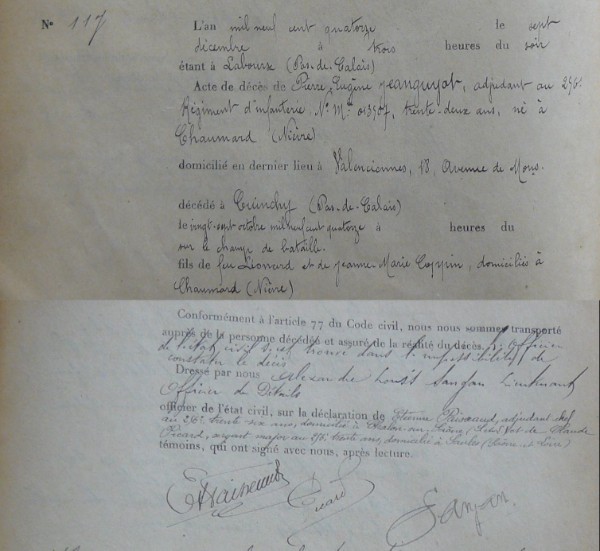 N° 117
L'an mil neuf cent quatorze le sept
décembre à trois heures du soir
étant à Labourse (Pas-de-Calais)
Acte de décès de Pierre, Eugène Jeanguyot, adjudant au 296e
Régiment d'infanterie, N° Mle 01307, trente-deux ans, né à
Chaumard (Nièvre)
domicilié en dernier lieu à Valenciennes, 18, Avenue de Mons.
décédé à Cuinchy (Pas-de-Calais)
le vingt-sept octobre mil neuf cent quatorze à heures du
sur le champ de bataille.
fils de feu Léonard et de Jeanne-Marie Coppin, domiciliés à
Chaumard (Nièvre)
Conformément à l'article 77 du Code civil, nous nous sommes transporté
auprès de la personne décédée et assuré de la réalité du décès. L'officier
de l'état civil s'est trouvé dans l'impossibilité de
constater le décès
Dressé par nous Alexandre Louis Sanjan Lieutenant
Officier de Détails
officier de l'état civil, sur la déclaration de Etienne adjudant chef
au 296e trente six ans, domicilié à Chalon-sur-Saône, et de Claude
Picard, sergent major au trente ans, domicilié à (Saône et Loire)
témoins, qui ont signé avec nous, après lecture.
Picard Sanjan